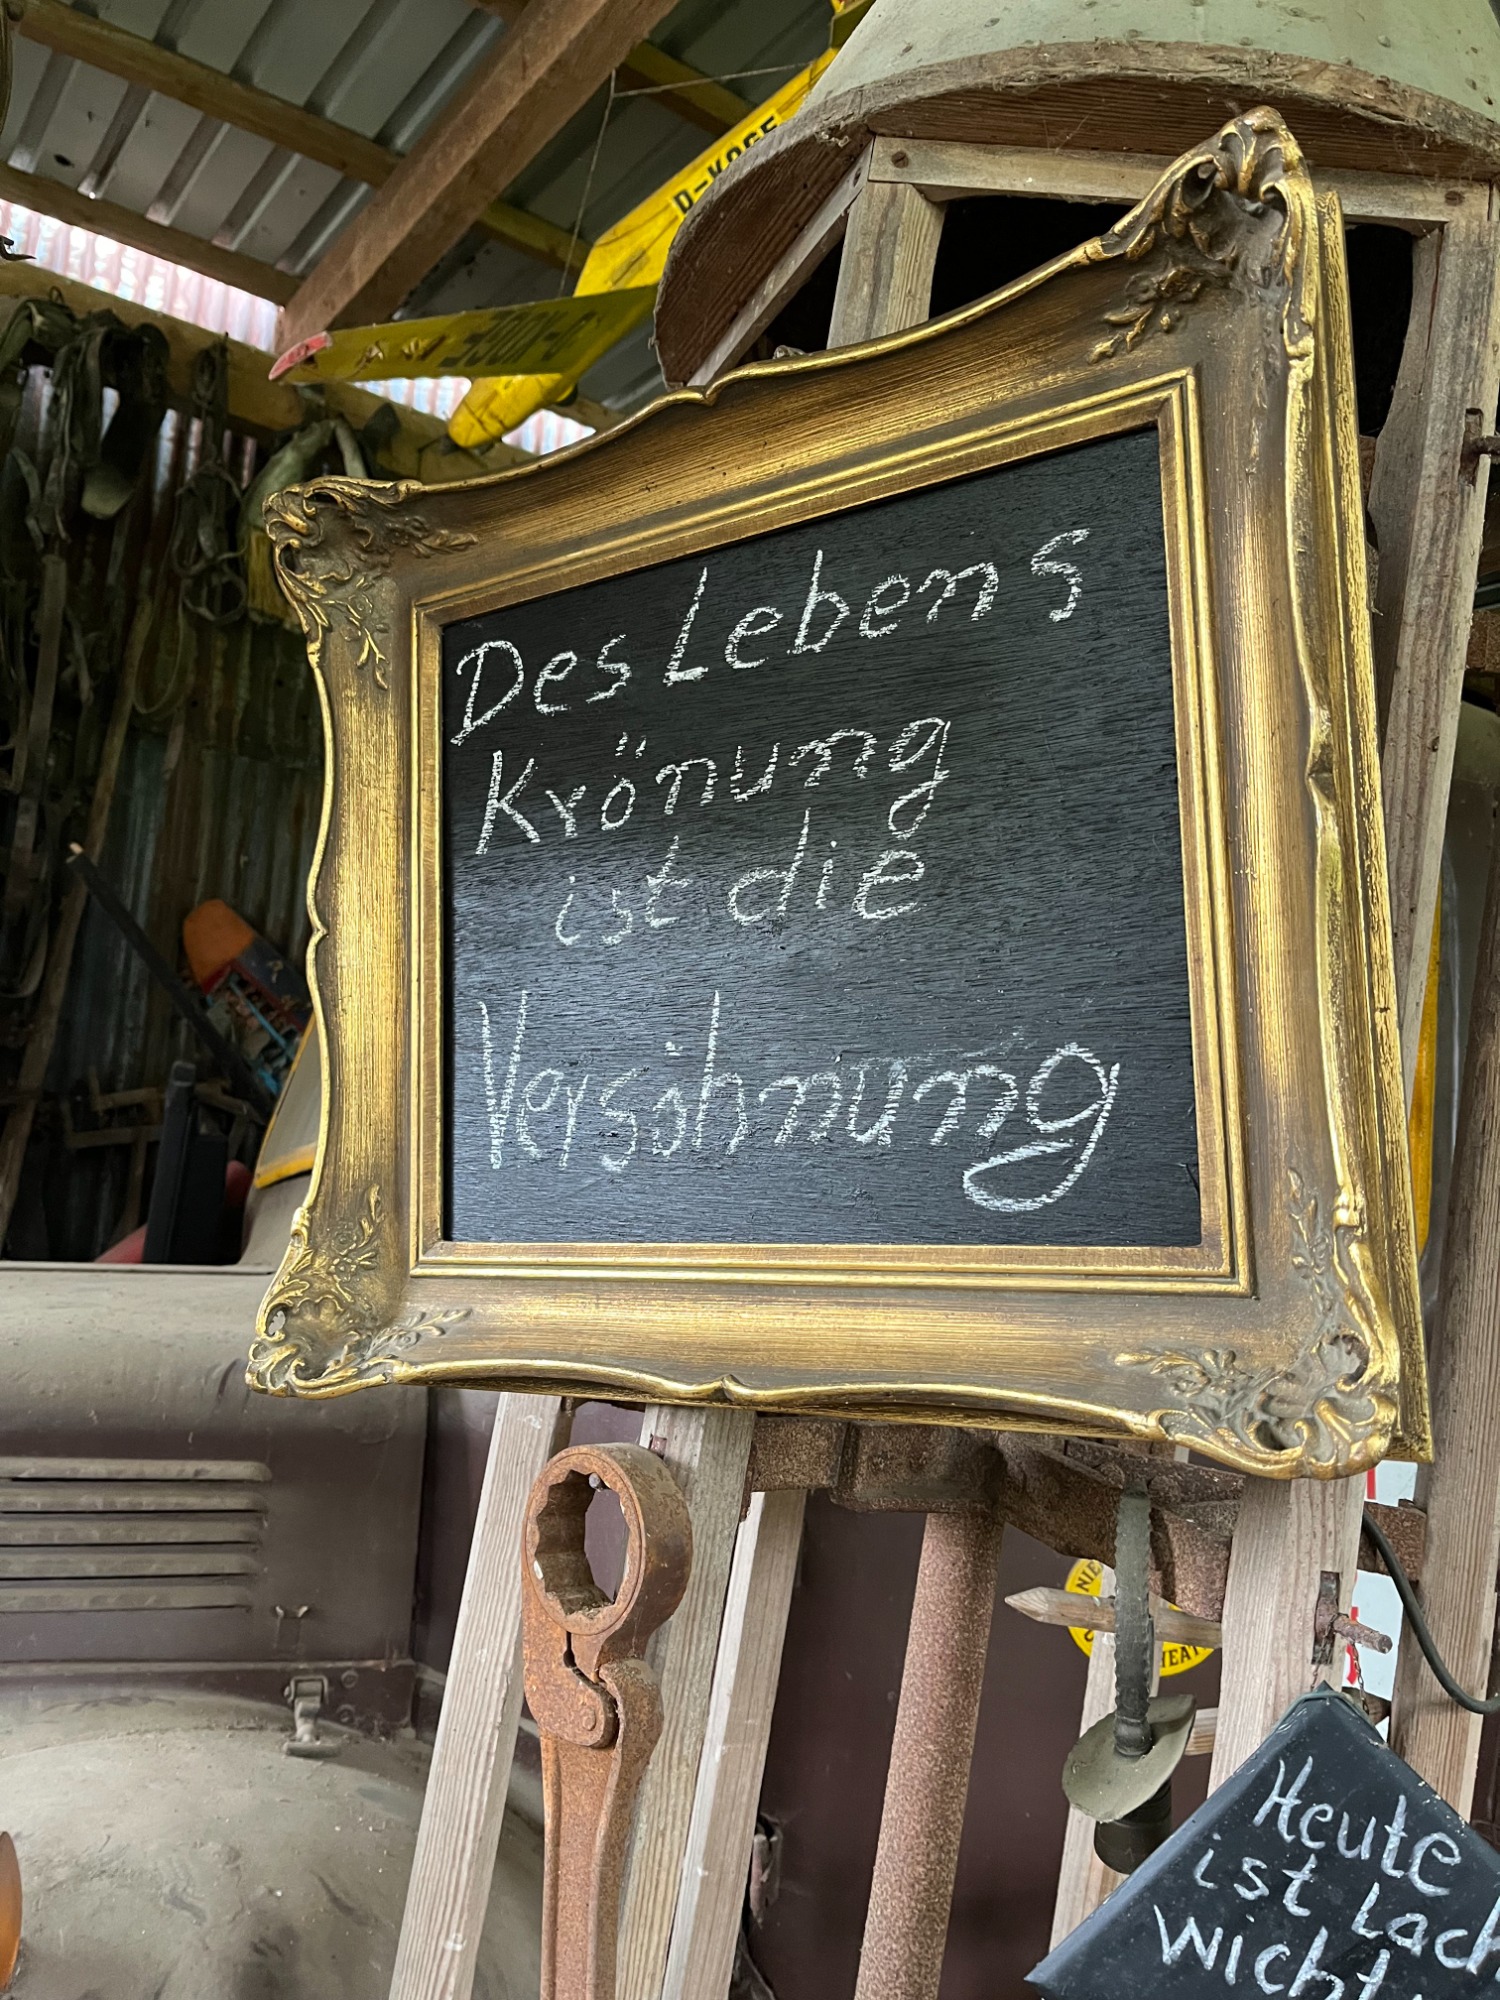 D-KOGE
D-KOGE
Des Lebens
Krönung
ist die
Versöhnung
Heute
ist